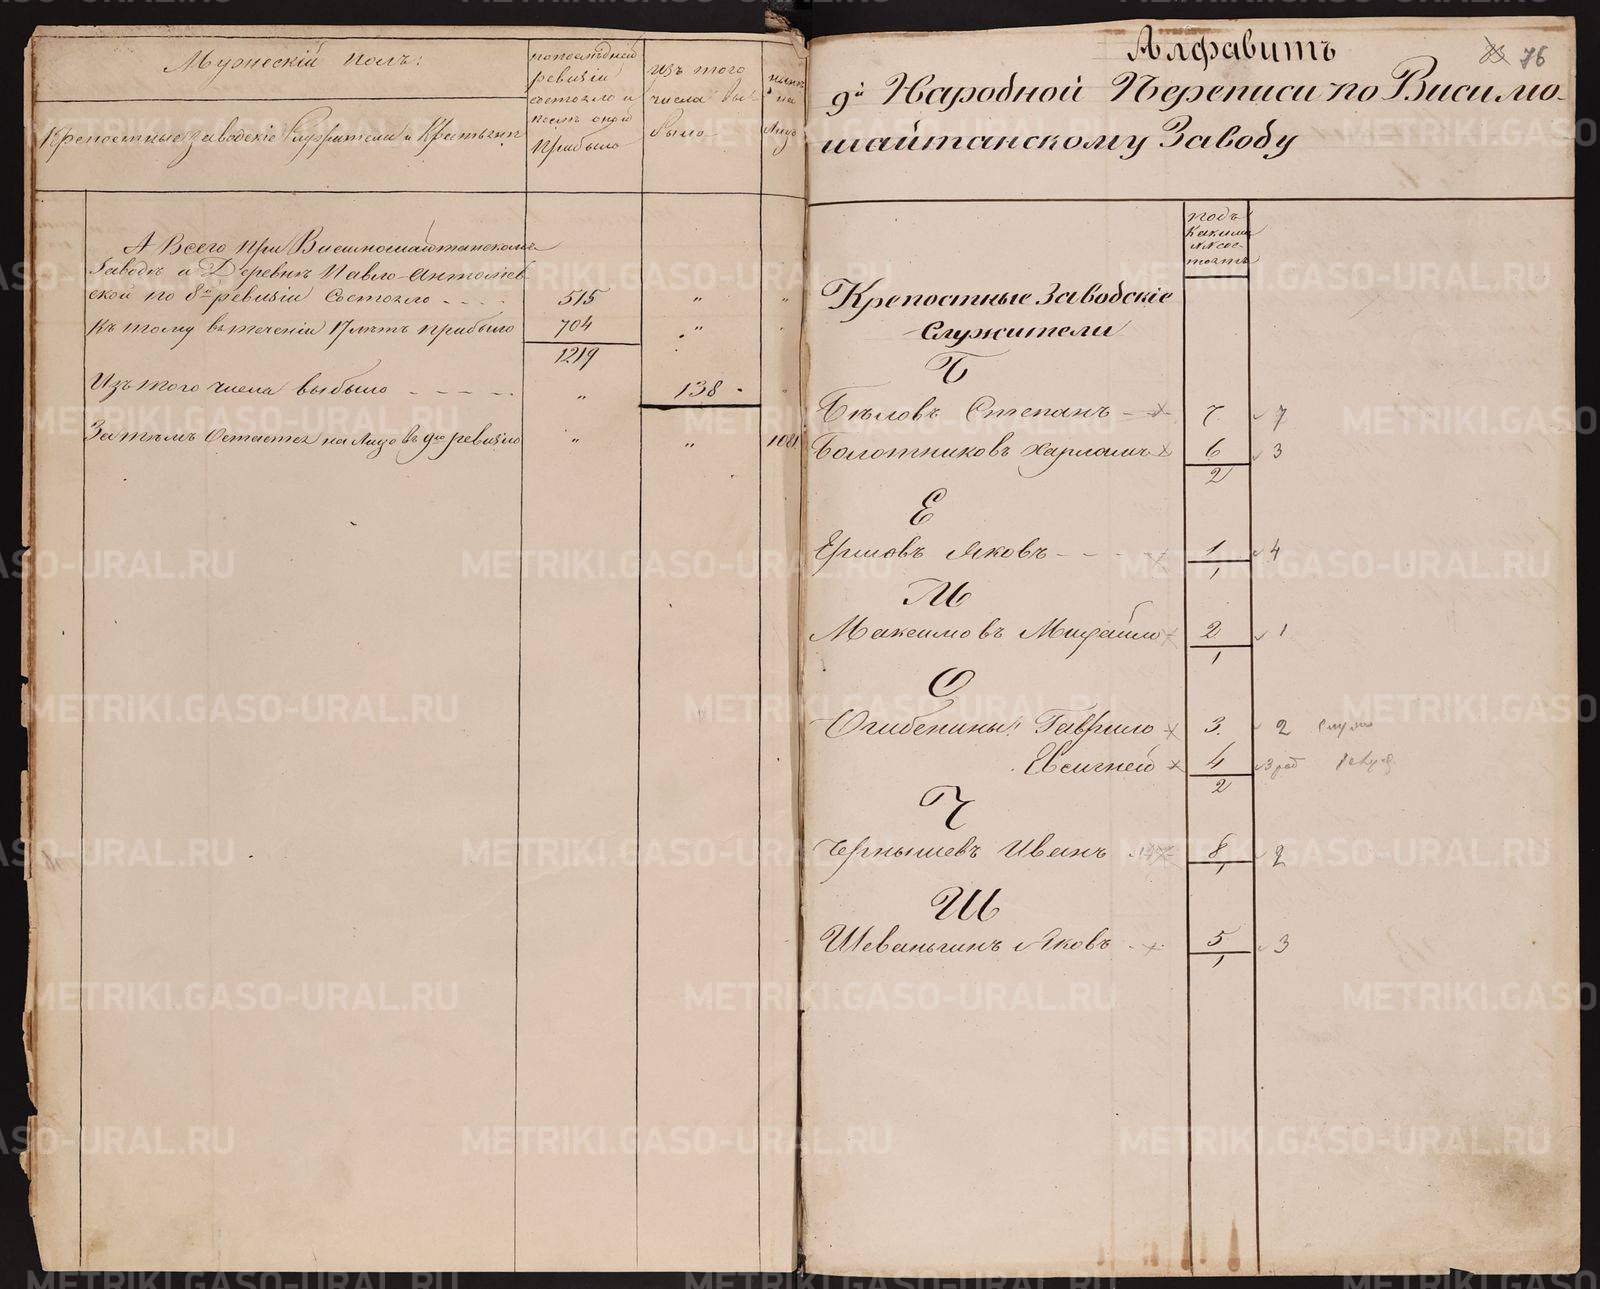 Мужескій полъ:
Крепостные заводскіе Служители и Крестьяне
по последней
ревизіи
состояло и
после оной
прибыло
Изъ того
числа вы-
было
ныне
на
лицо
А Всего при Висимошайтанскомъ
Заводе и Деревне Павло-Анатолев-
ской по 8й ревизіи Состояло - - - -
515
"
"
Къ тому въ теченіи 17 летъ прибыло
704
"
"
1219
Изъ того числа выбыло - - - - -
"
138
"
За темъ Остается на Лицо въ 9ю ревизію
"
"
1081
76
Алфавитъ
9й Народной Переписи по Висимо-
шайтанскому Заводу
подъ
какими
№№ сос-
тоятъ
Крепостные Заводскіе
Служители
Б
Бѣловъ Степанъ - 7 7
Болотниковъ Харламъ 6 3
2
Е
Ершовъ Яковъ - - - 1 4
1
М
Максимовъ Михайло 2 1
1
О
Огибенины: Гаврило 3. 2
Евсигней 4 3 раб
2
Ч
Чернышевъ Иванъ 8 2
1
Ш
Шеваньгинъ Яковъ 5 3
1
METRIKI.GASO-URAL.RU